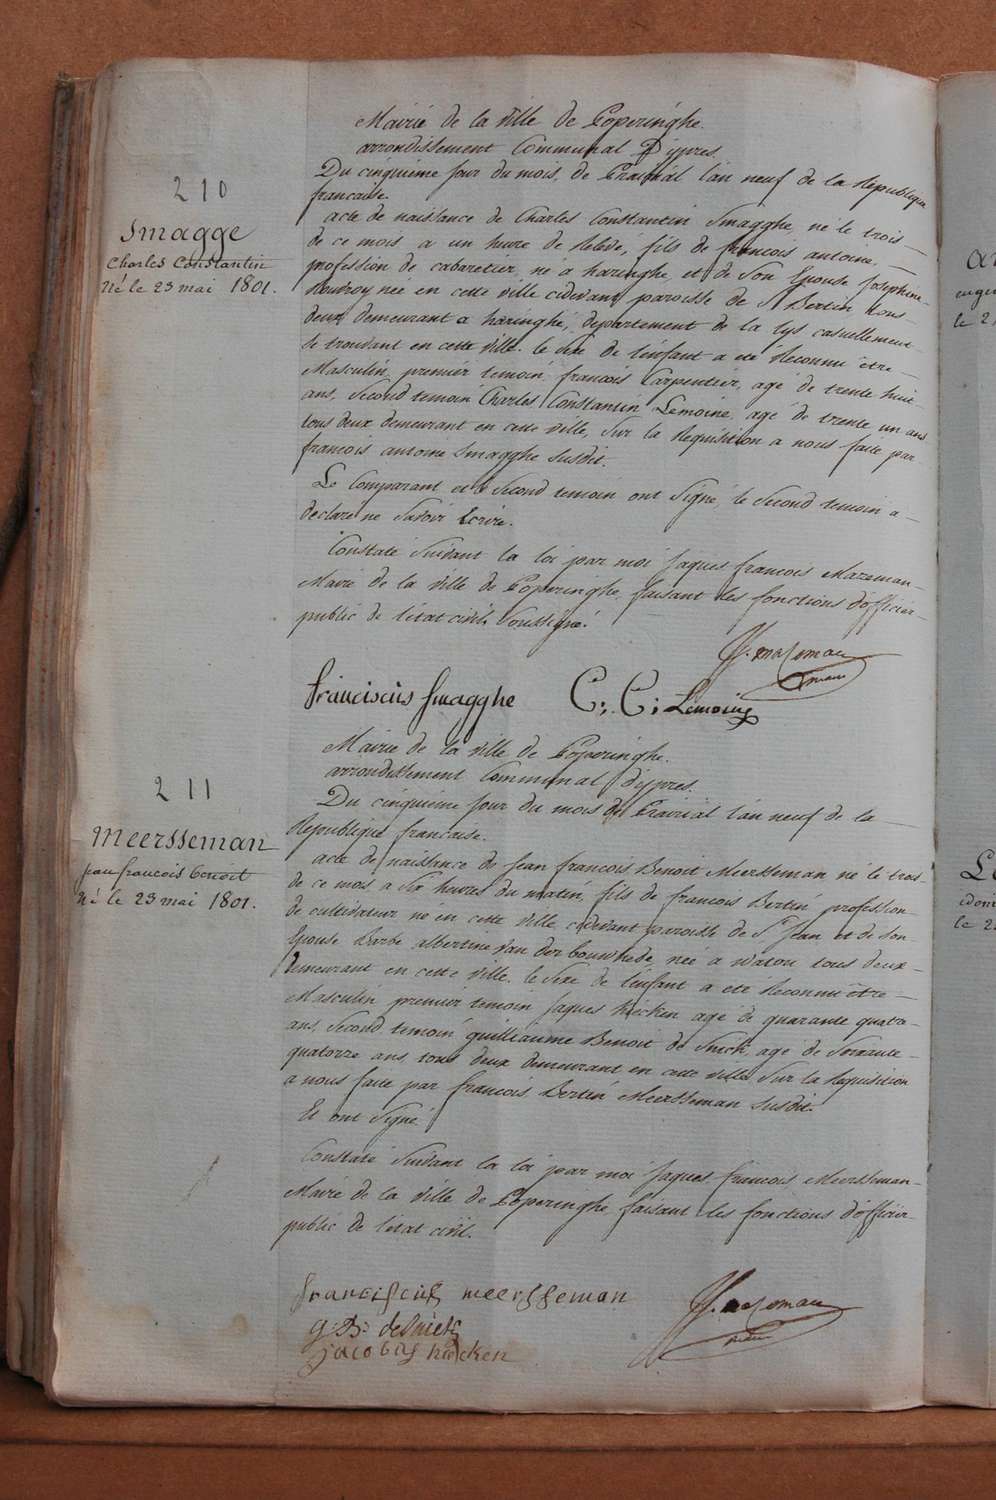 210
Smagge
Charles Constantin
Né le 23 mai 1801.
Mairie de la ville de Poperinghe.
arrondissement Communal D'ypres.
Du cinquieme jour du mois de Prairial l'an neuf de la Republique
francaise.
acte de naissance de Charles Constantin Smagghe, né le trois
de ce mois a un heure de Relevé, fils de francois antoine,
profession de cabaretier, né a haringhe, et de Son Epouse Josephine
née en cette ville cidevant paroisse de St Bertin tous
deux demeurant a haringhe, departement de la lys casuellement
se trouvant en cette ville. le sexe de l'enfant a eté Reconnu être
Masculin, premier temoin, francois Carpentier, agé de trente huit
ans, Second temoin Charles Constantin Lemoine, agé de trente un ans
tous deux demeurant en cette ville, Sur la Requisition a nous faite par
francois antoine Smagghe susdit.
Le Comparant et le Second temoin ont Signé, le Second temoin a
declaré ne Savoir Ecrire.
Constaté Suivant la loi par moi Jaques francois Mazeman
Maire de la ville de Poperinghe, faisant les fonctions d'officier
public de l'état civil Soussigné.
J. f. mazeman
maire
franciscus Smagghe C: C: Lemoine
211
Meersseman
jean francois benoit
Né le 23 mai 1801.
Mairie de la ville de Poperinghe.
arrondissement Communal d'ypres.
Du cinquieme jour du mois de Prairial l'an neuf de la
Republique francaise.
acte de naissance de Jean francois Benoit Meersseman né le trois
de ce mois a Six heures du matin, fils de francois Bertin profession
de cultivateur né en cette ville cidevant paroisse de St Jean et de Son
Epouse Barbe albertine van der bouwhede, née a watou tous deux
demeurant en cette ville. le Sexe de l'enfant a eté Reconnu être
Masculin premier temoin Jaques hicken agé de quarante quatre
ans, Second temoin guilliaume Benoit de Snick, agé de Soixante
quatorze ans tous deux demeurant en cette ville Sur la Requisition
a nous faite par francois Bertin Meersseman Susdit.
Et ont Signé.
Constaté Suivant la loi par moi Jaques francois Meersseman
Maire de la ville de Poperinghe, faisant les fonctions d'officier
public de l'état civil.
franciscus meersseman
g: B: desnick
jacobus hicken
J. f. mazeman
maire